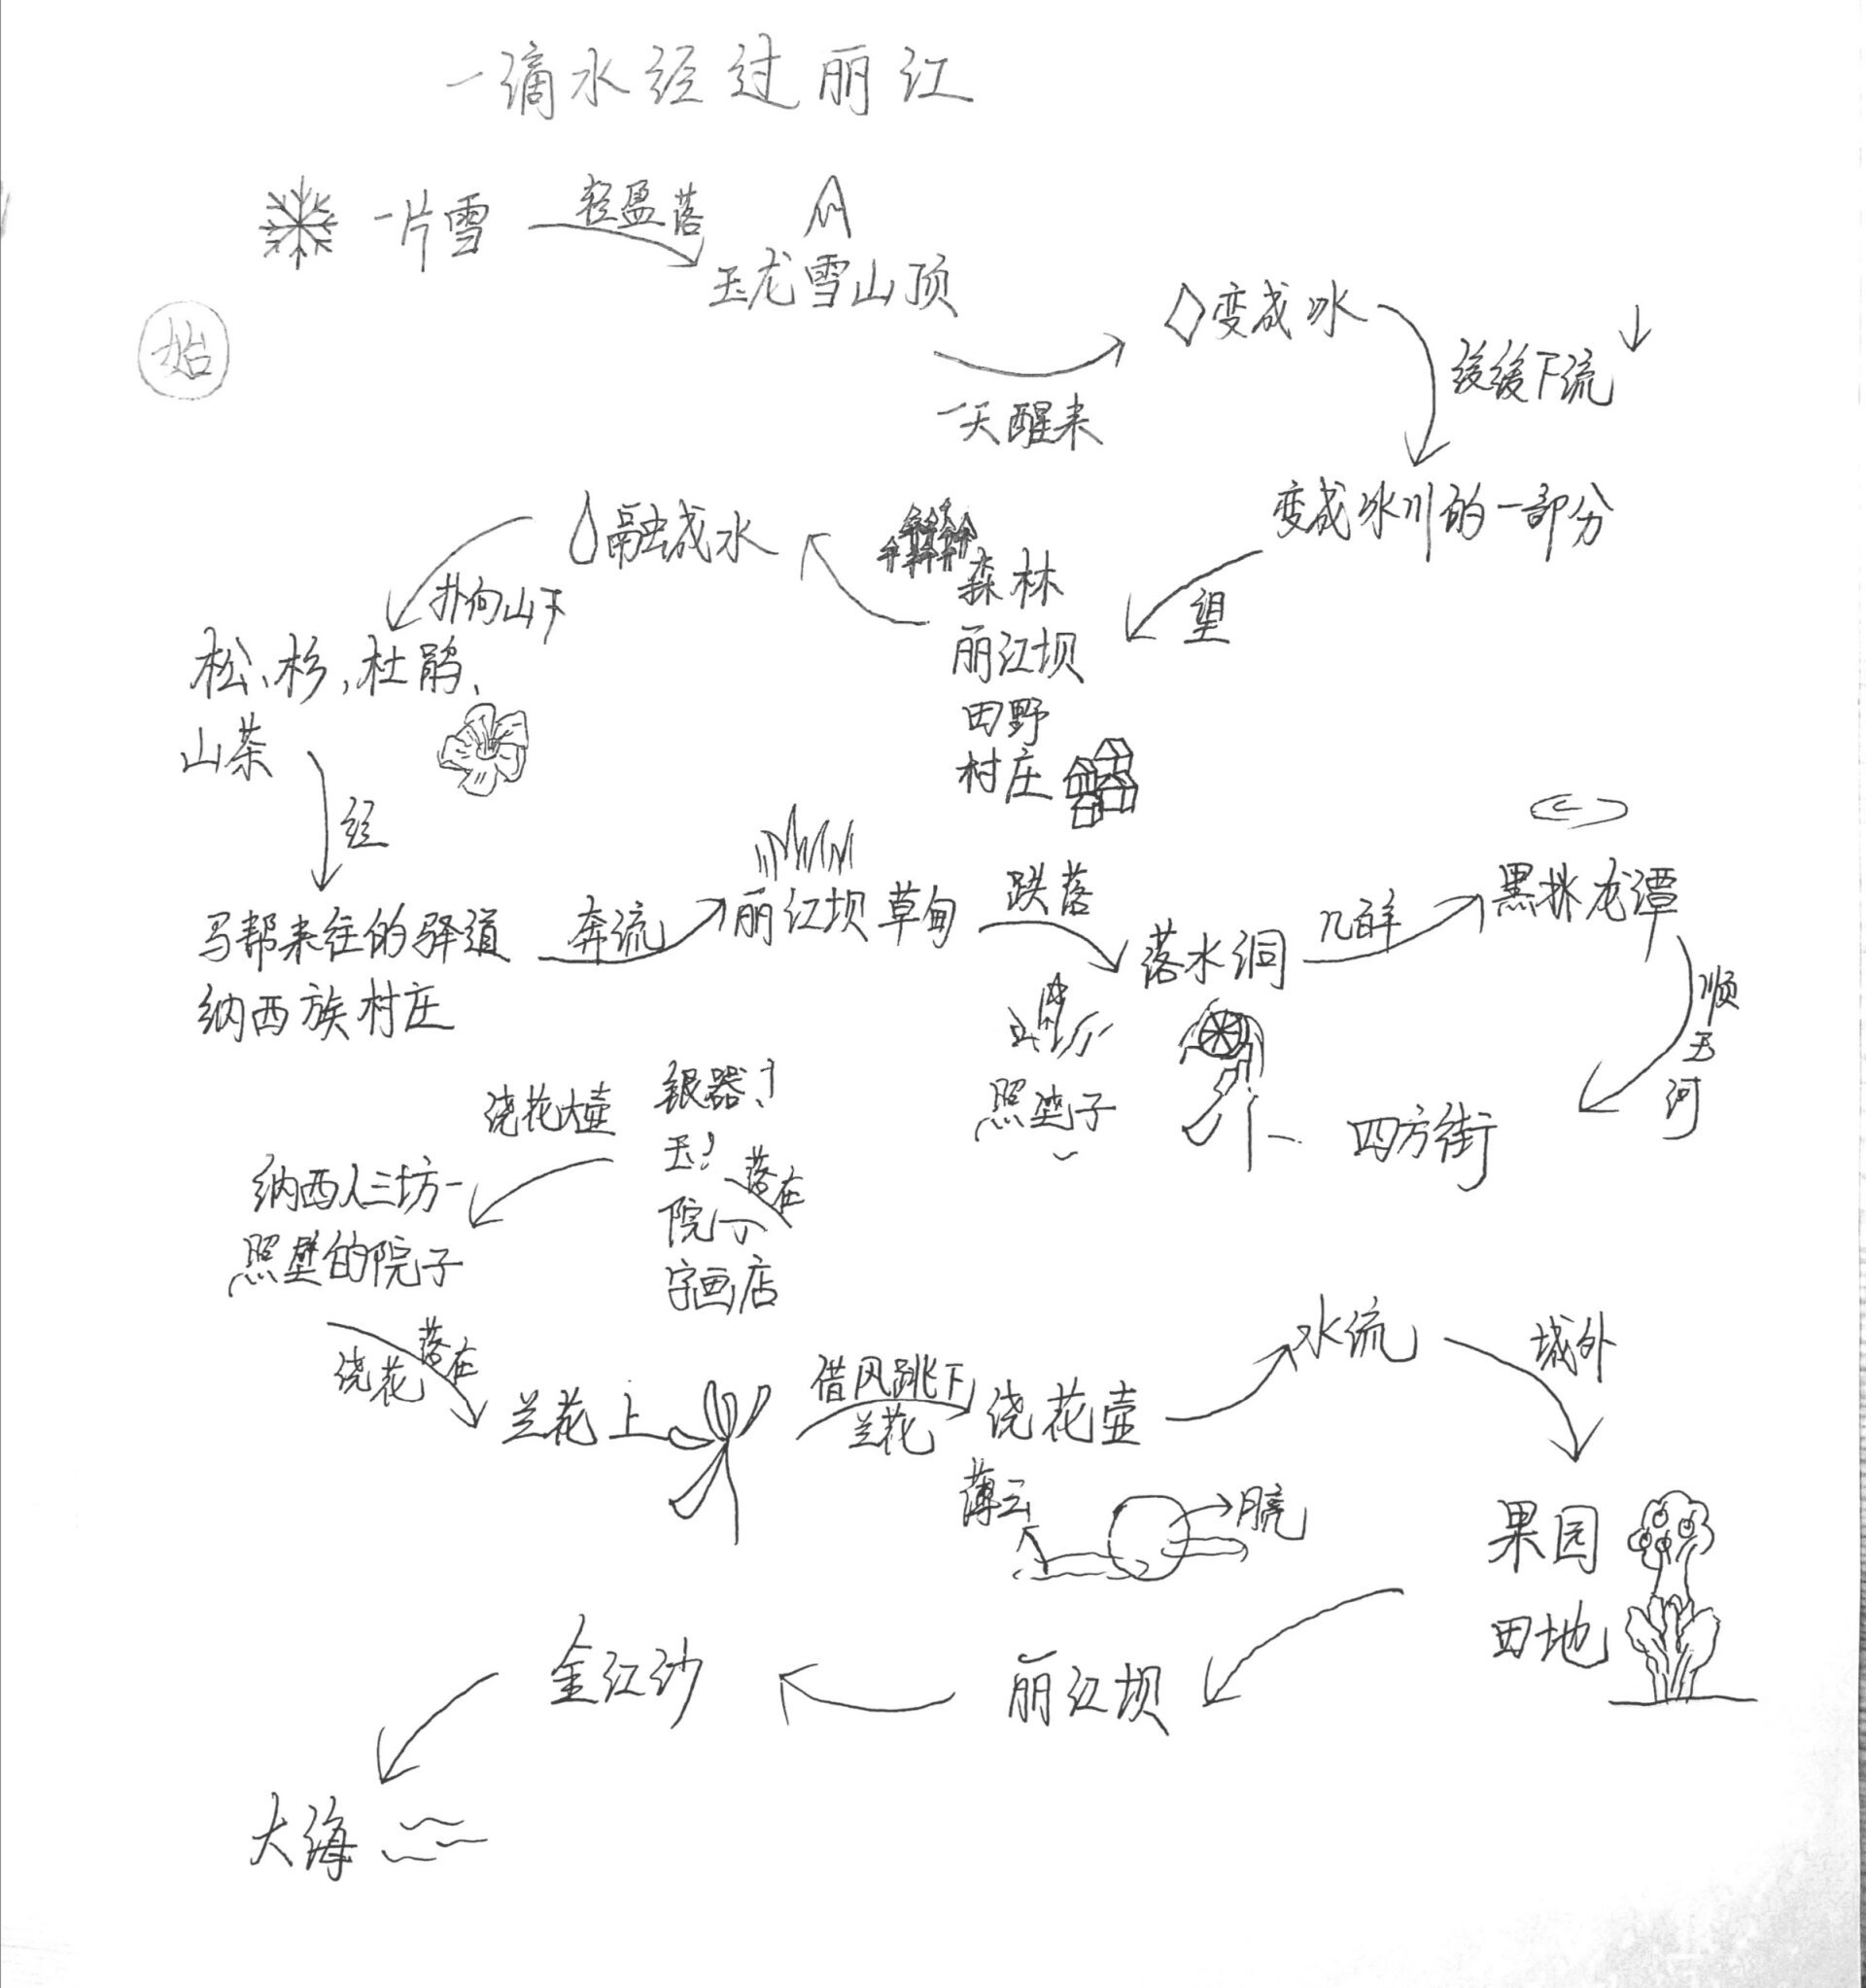 一滴水经过丽江
一片雪
轻盈落
玉龙雪山顶
始
变成冰
缓缓下流
一天醒来
变成冰川的一部分
望
森林
丽江坝
田野
村庄
融成水
扑向山下
松、杉,杜鹃、
山茶
经
马帮来往的驿道
纳西族村庄
奔流
丽江坝草甸
跌落
落水洞
几醉
黑龙潭
顺
玉
河
四方街
照
子
银器
玉
落在
院
字画店
浇花大壶
纳西人三坊一
照壁的院子
浇花
落在
兰花上
借风跳下
兰花
浇花壶
水流
城外
薄云
果园
田地
丽江坝
金江沙
大海